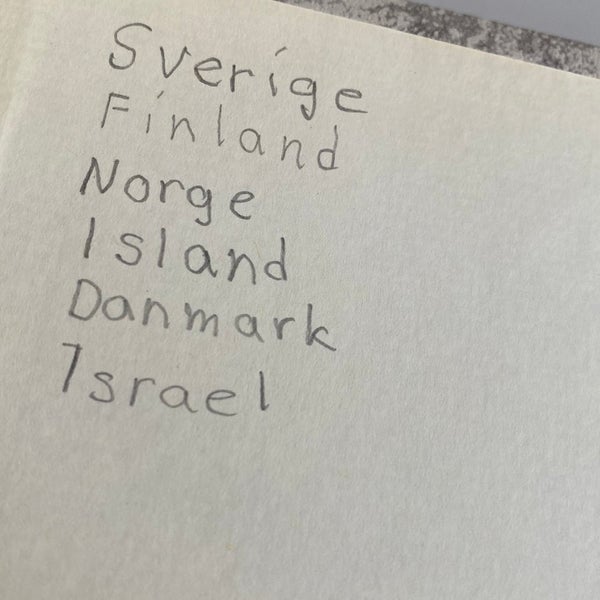 Sverige
Finland
Norge
Island
Danmark
Israel